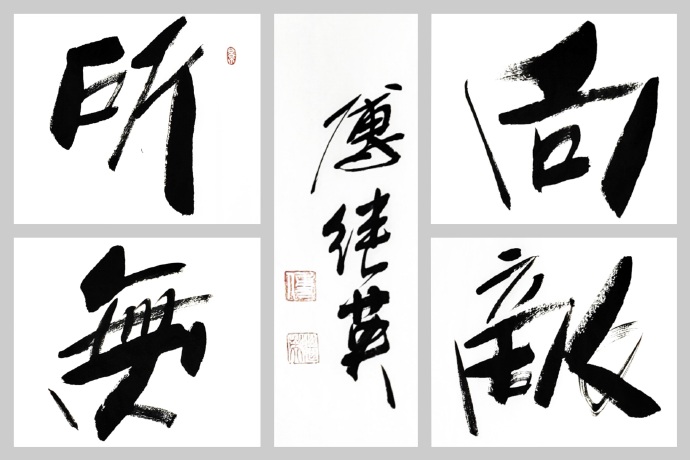 所向
無敵
傅继英